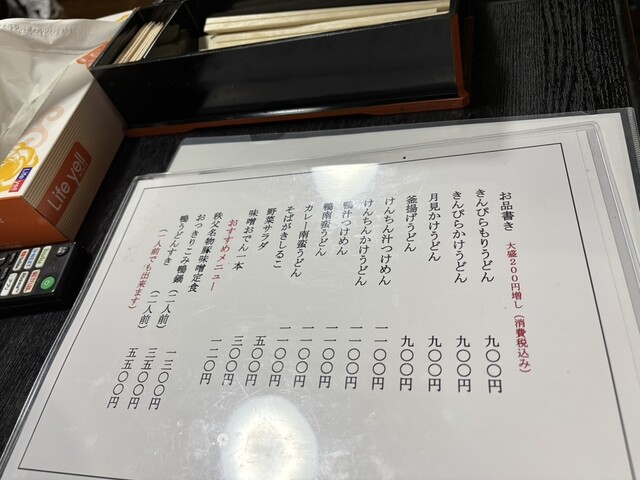 お品書き 大盛200円増し(消費税込み)
きんぴらもりうどん 九〇〇円
きんぴらかけうどん 九〇〇円
月見かけうどん 九〇〇円
釜揚げうどん 九〇〇円
けんちん汁つけめん 一一〇〇円
けんちんかけうどん 一一〇〇円
鴨汁つけめん 一一〇〇円
鴨南蛮うどん 一一〇〇円
カレー南蛮うどん 一一〇〇円
そばがきしるこ 五〇〇円
野菜サラダ 三〇〇円
味噌おでん一本 一二〇円
おすすめメニュー
秩父名物豚味噌定食 一三〇〇円
おっきりこみ鴨鍋(二人前) 三五〇〇円
鴨うどんすき(二人前) 五五〇〇円
(一人前でも出来ます)
Life yell